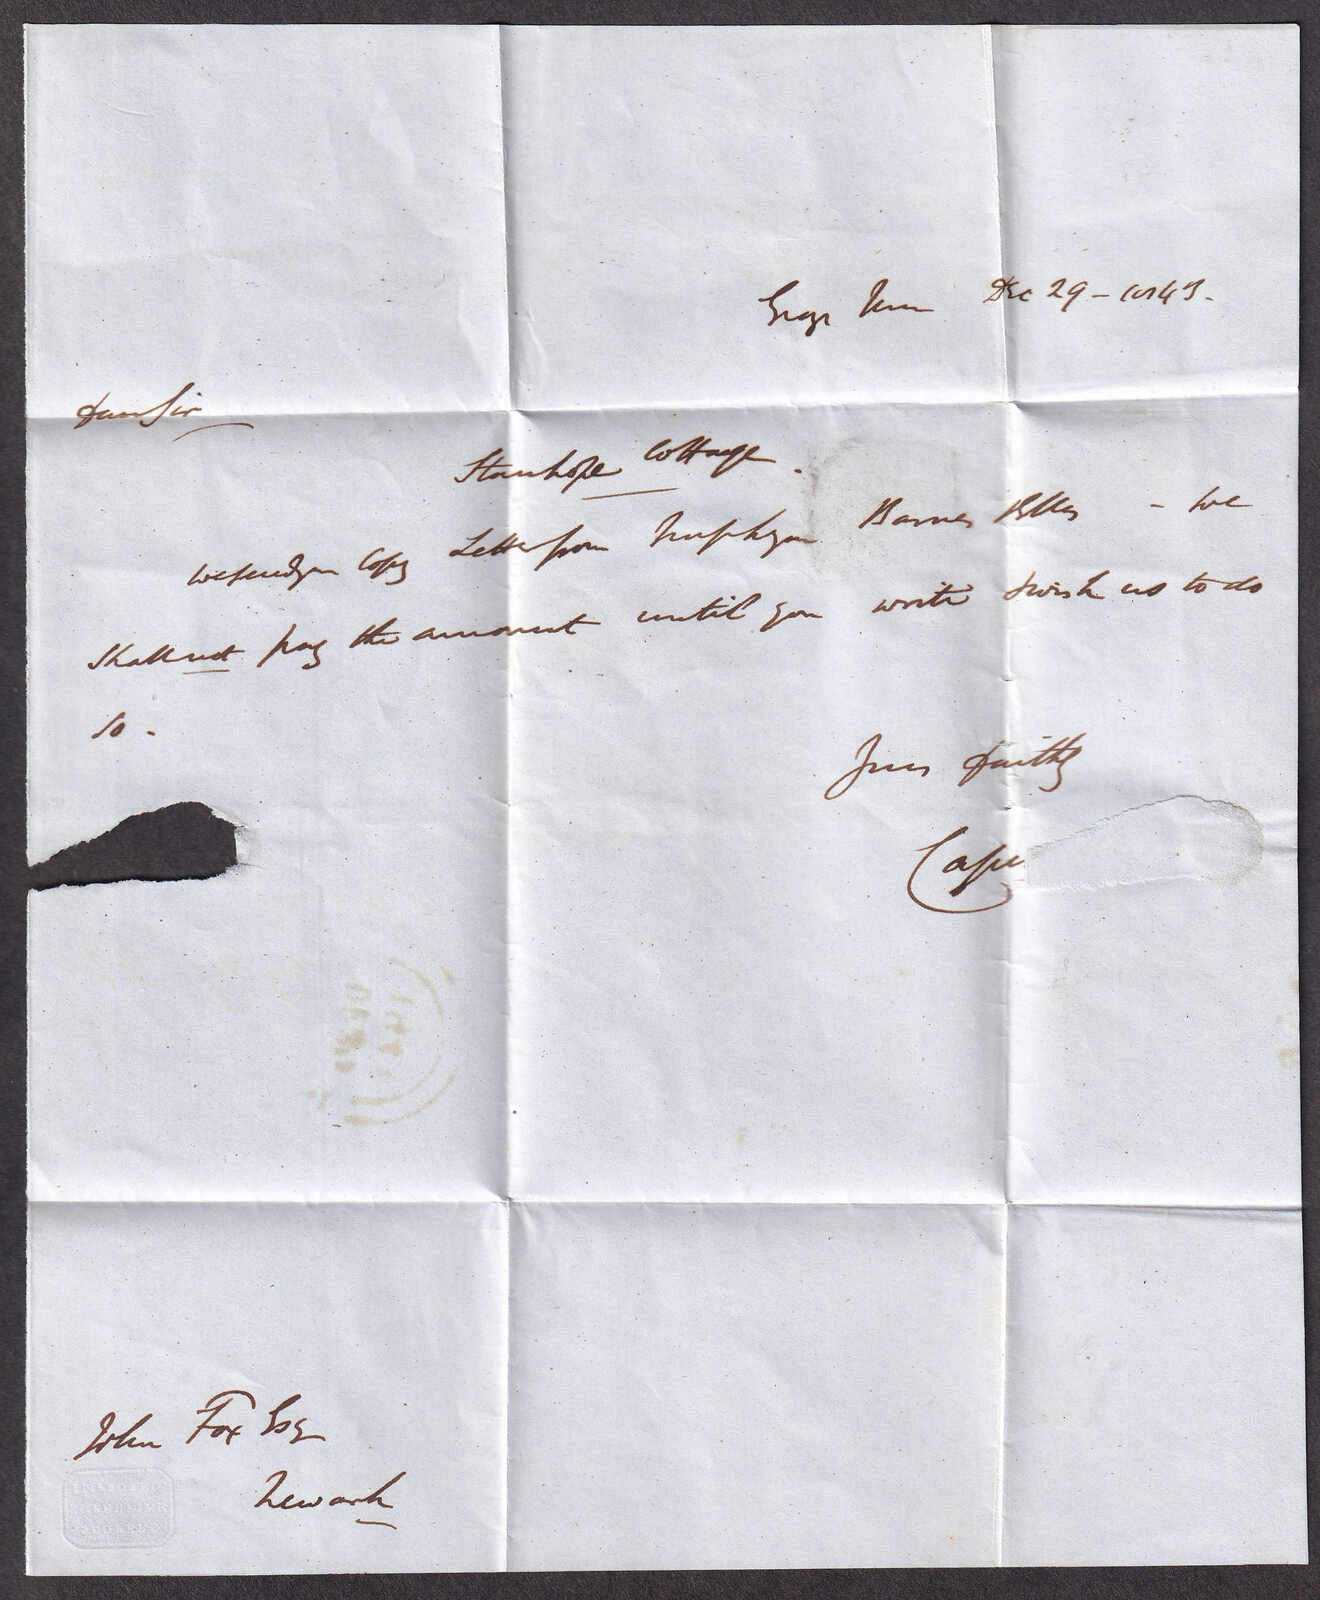 Grays Inn Dec 29 - 1843.
Dear Sir
Stanhope Cottage.
We send you Copy Letter from Barnes - We
shall not pay the amount until you write & wish us to do
so.
Yours Faithy
John Fox Esq
Newark